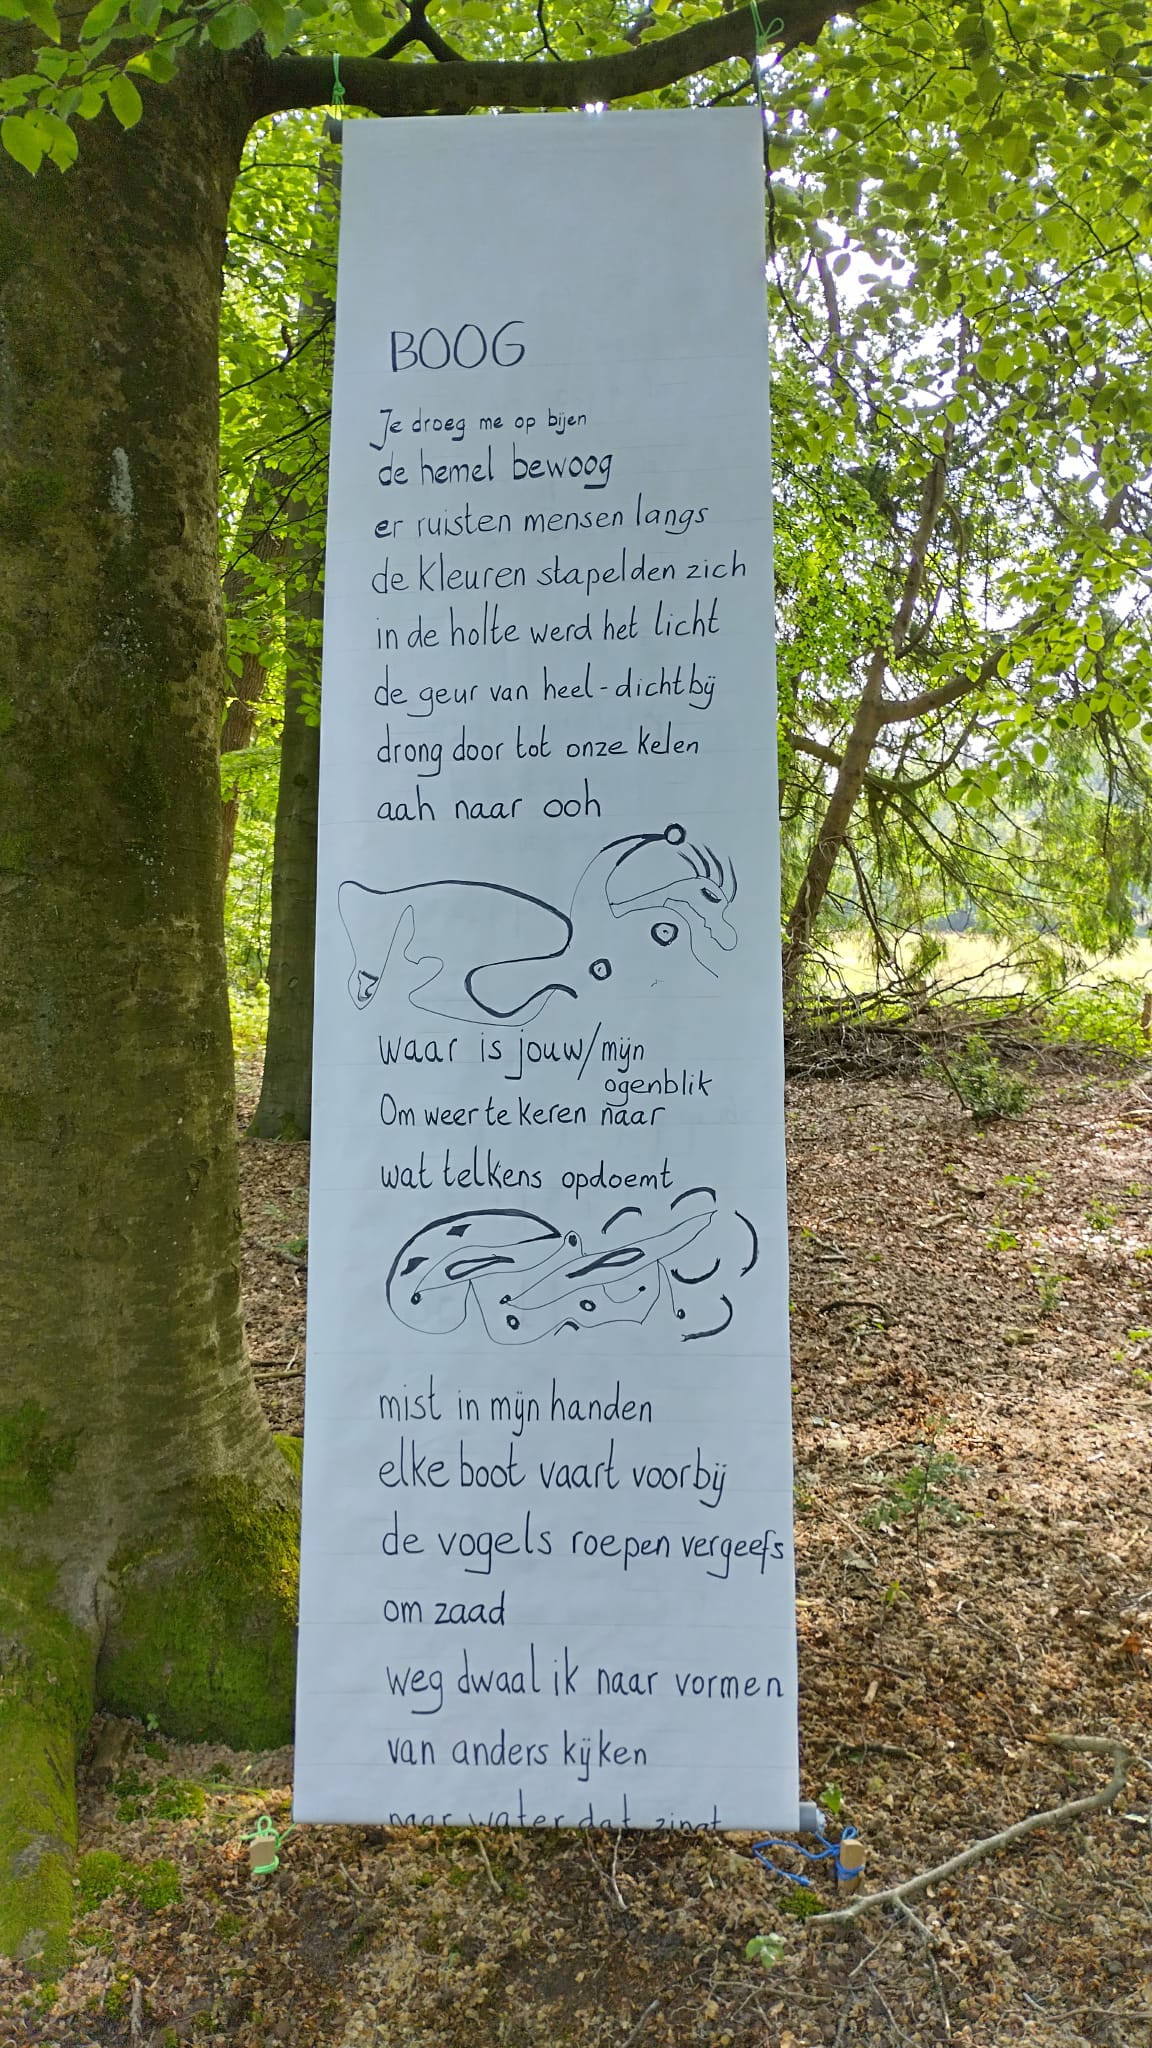 BOOG
Je droeg me op bijen
de hemel bewoog
er ruisten mensen langs
de kleuren stapelden zich
in de holte werd het licht
de geur van heel-dichtbij
drong door tot onze kelen
aah naar ooh
waar is jouw/mijn
ogenblik
Om weer te keren naar
wat telkens opdoemt
mist in mijn handen
elke boot vaart voorbij
de vogels roepen vergeefs
om zaad
weg dwaal ik naar vormen
van anders kijken
naar water dat zingt